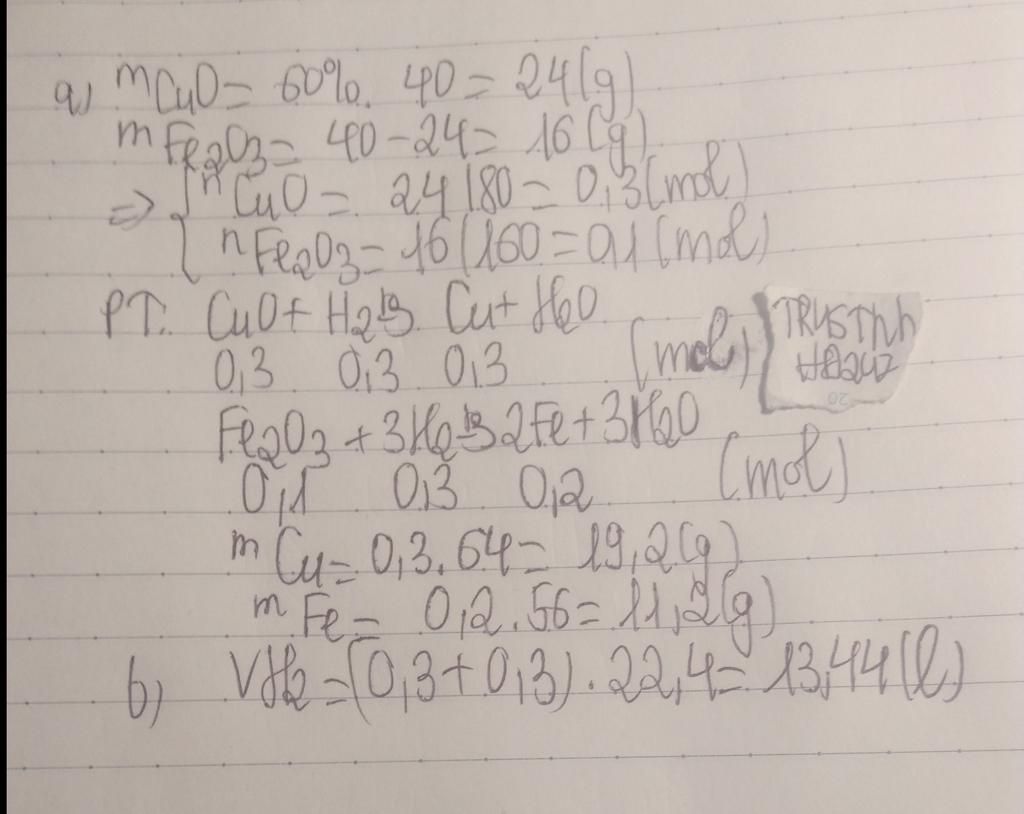 a) mCuO = 60%. 40 = 24(g)
mFe2O3 = 40-24 = 16(g)
=> { nCuO = 24/80 = 0,3(mol)
nFe2O3 = 16/160 = 0,1(mol)
PT: CuO + H2 Cu + H2O
0,3 0,3 0,3 (mol)
Fe2O3 + 3H2 2Fe + 3H2O
0,1 0,3 0,2 (mol)
mCu = 0,3.64 = 19,2(g)
mFe = 0,2.56 = 11,2(g)
b) VH2 = (0,3+0,3).22,4 = 13,44(l)